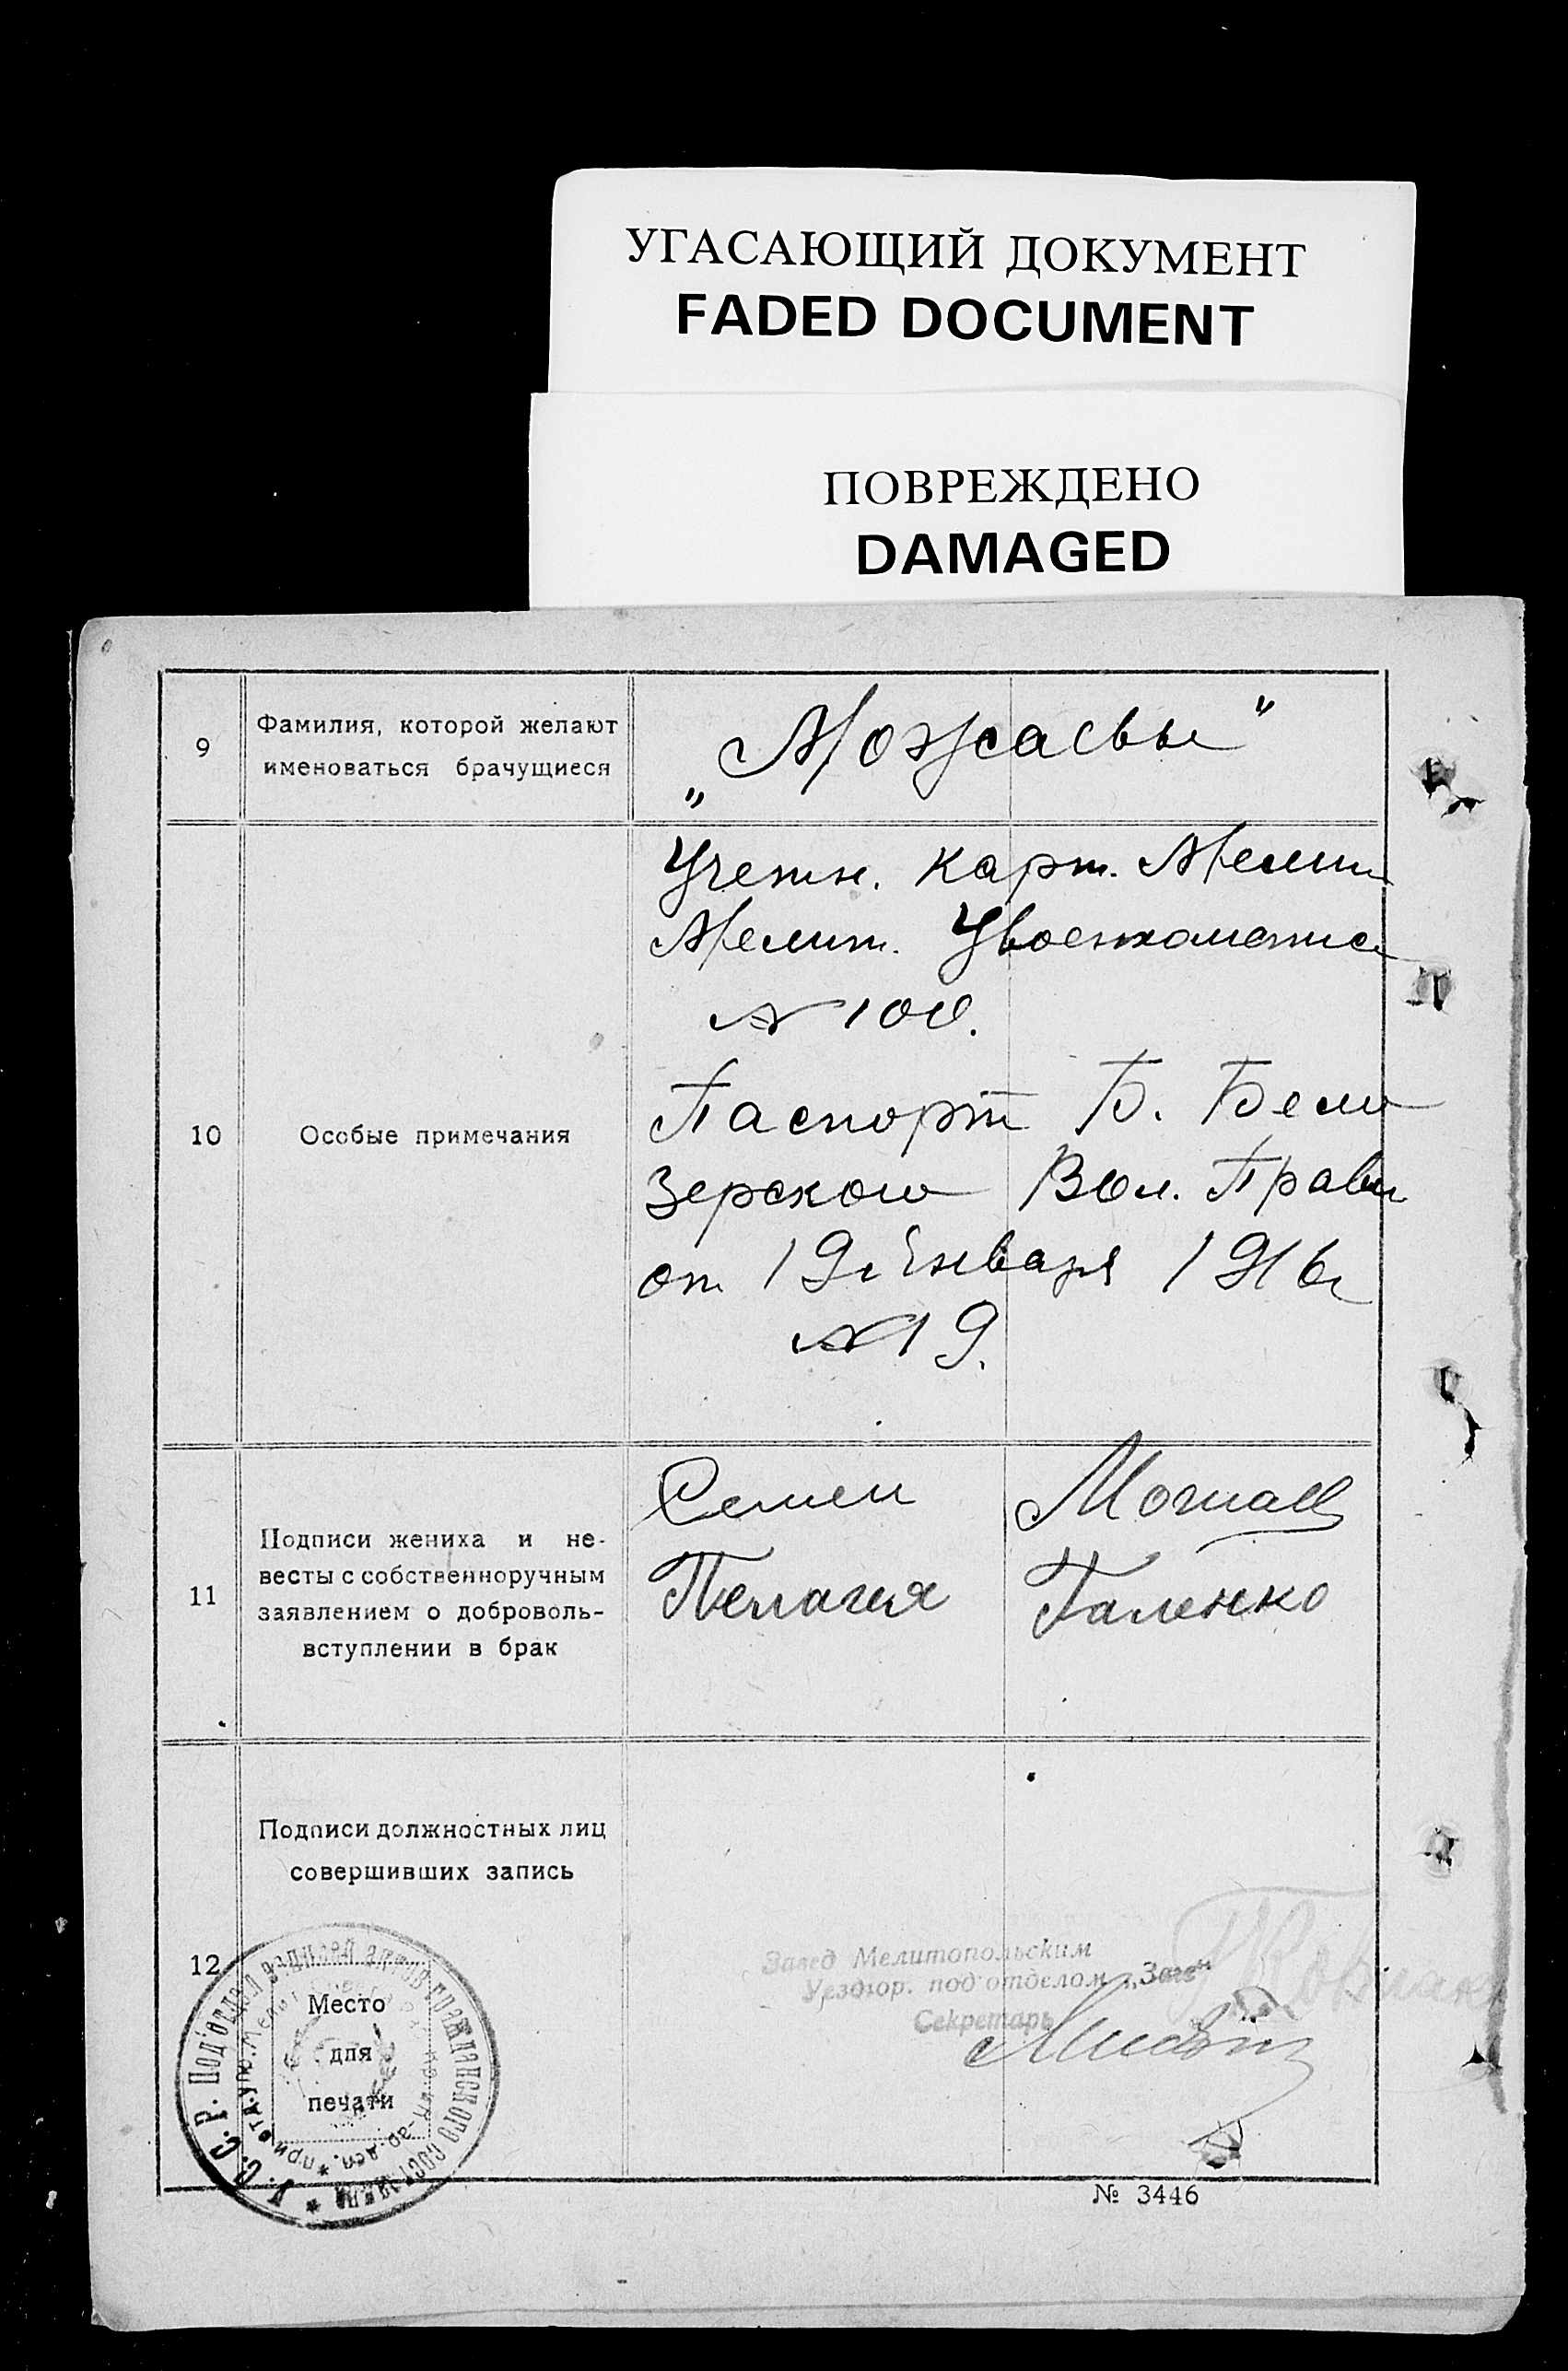 УГАСАЮЩИЙ ДОКУМЕНТ
FADED DOCUMENT
ПОВРЕЖДЕНО
DAMAGED
9
Фамилия, которой желают
именоваться брачущиеся
„
"
10
Особые примечания
Учетн. карт. Мелит
Мелит. Увоенкомата
N 100.
Паспорт Б. Бело
зерского Вол. Прав
от 19 Января 1916 г
N 19.
11
Подписи жениха и не-
весты с собственноручным
заявлением о доброволь-
вступлении в брак
Семен
Пелагея Галенко
12
Подписи должностных лиц
совершивших запись
Завед Мелитопольским
Уездгор. под'отделом „Загс"
Секретарь
У.С.С.Р. Под'отдел записей актов гражданского состояния
Место
для
печати
№ 3446